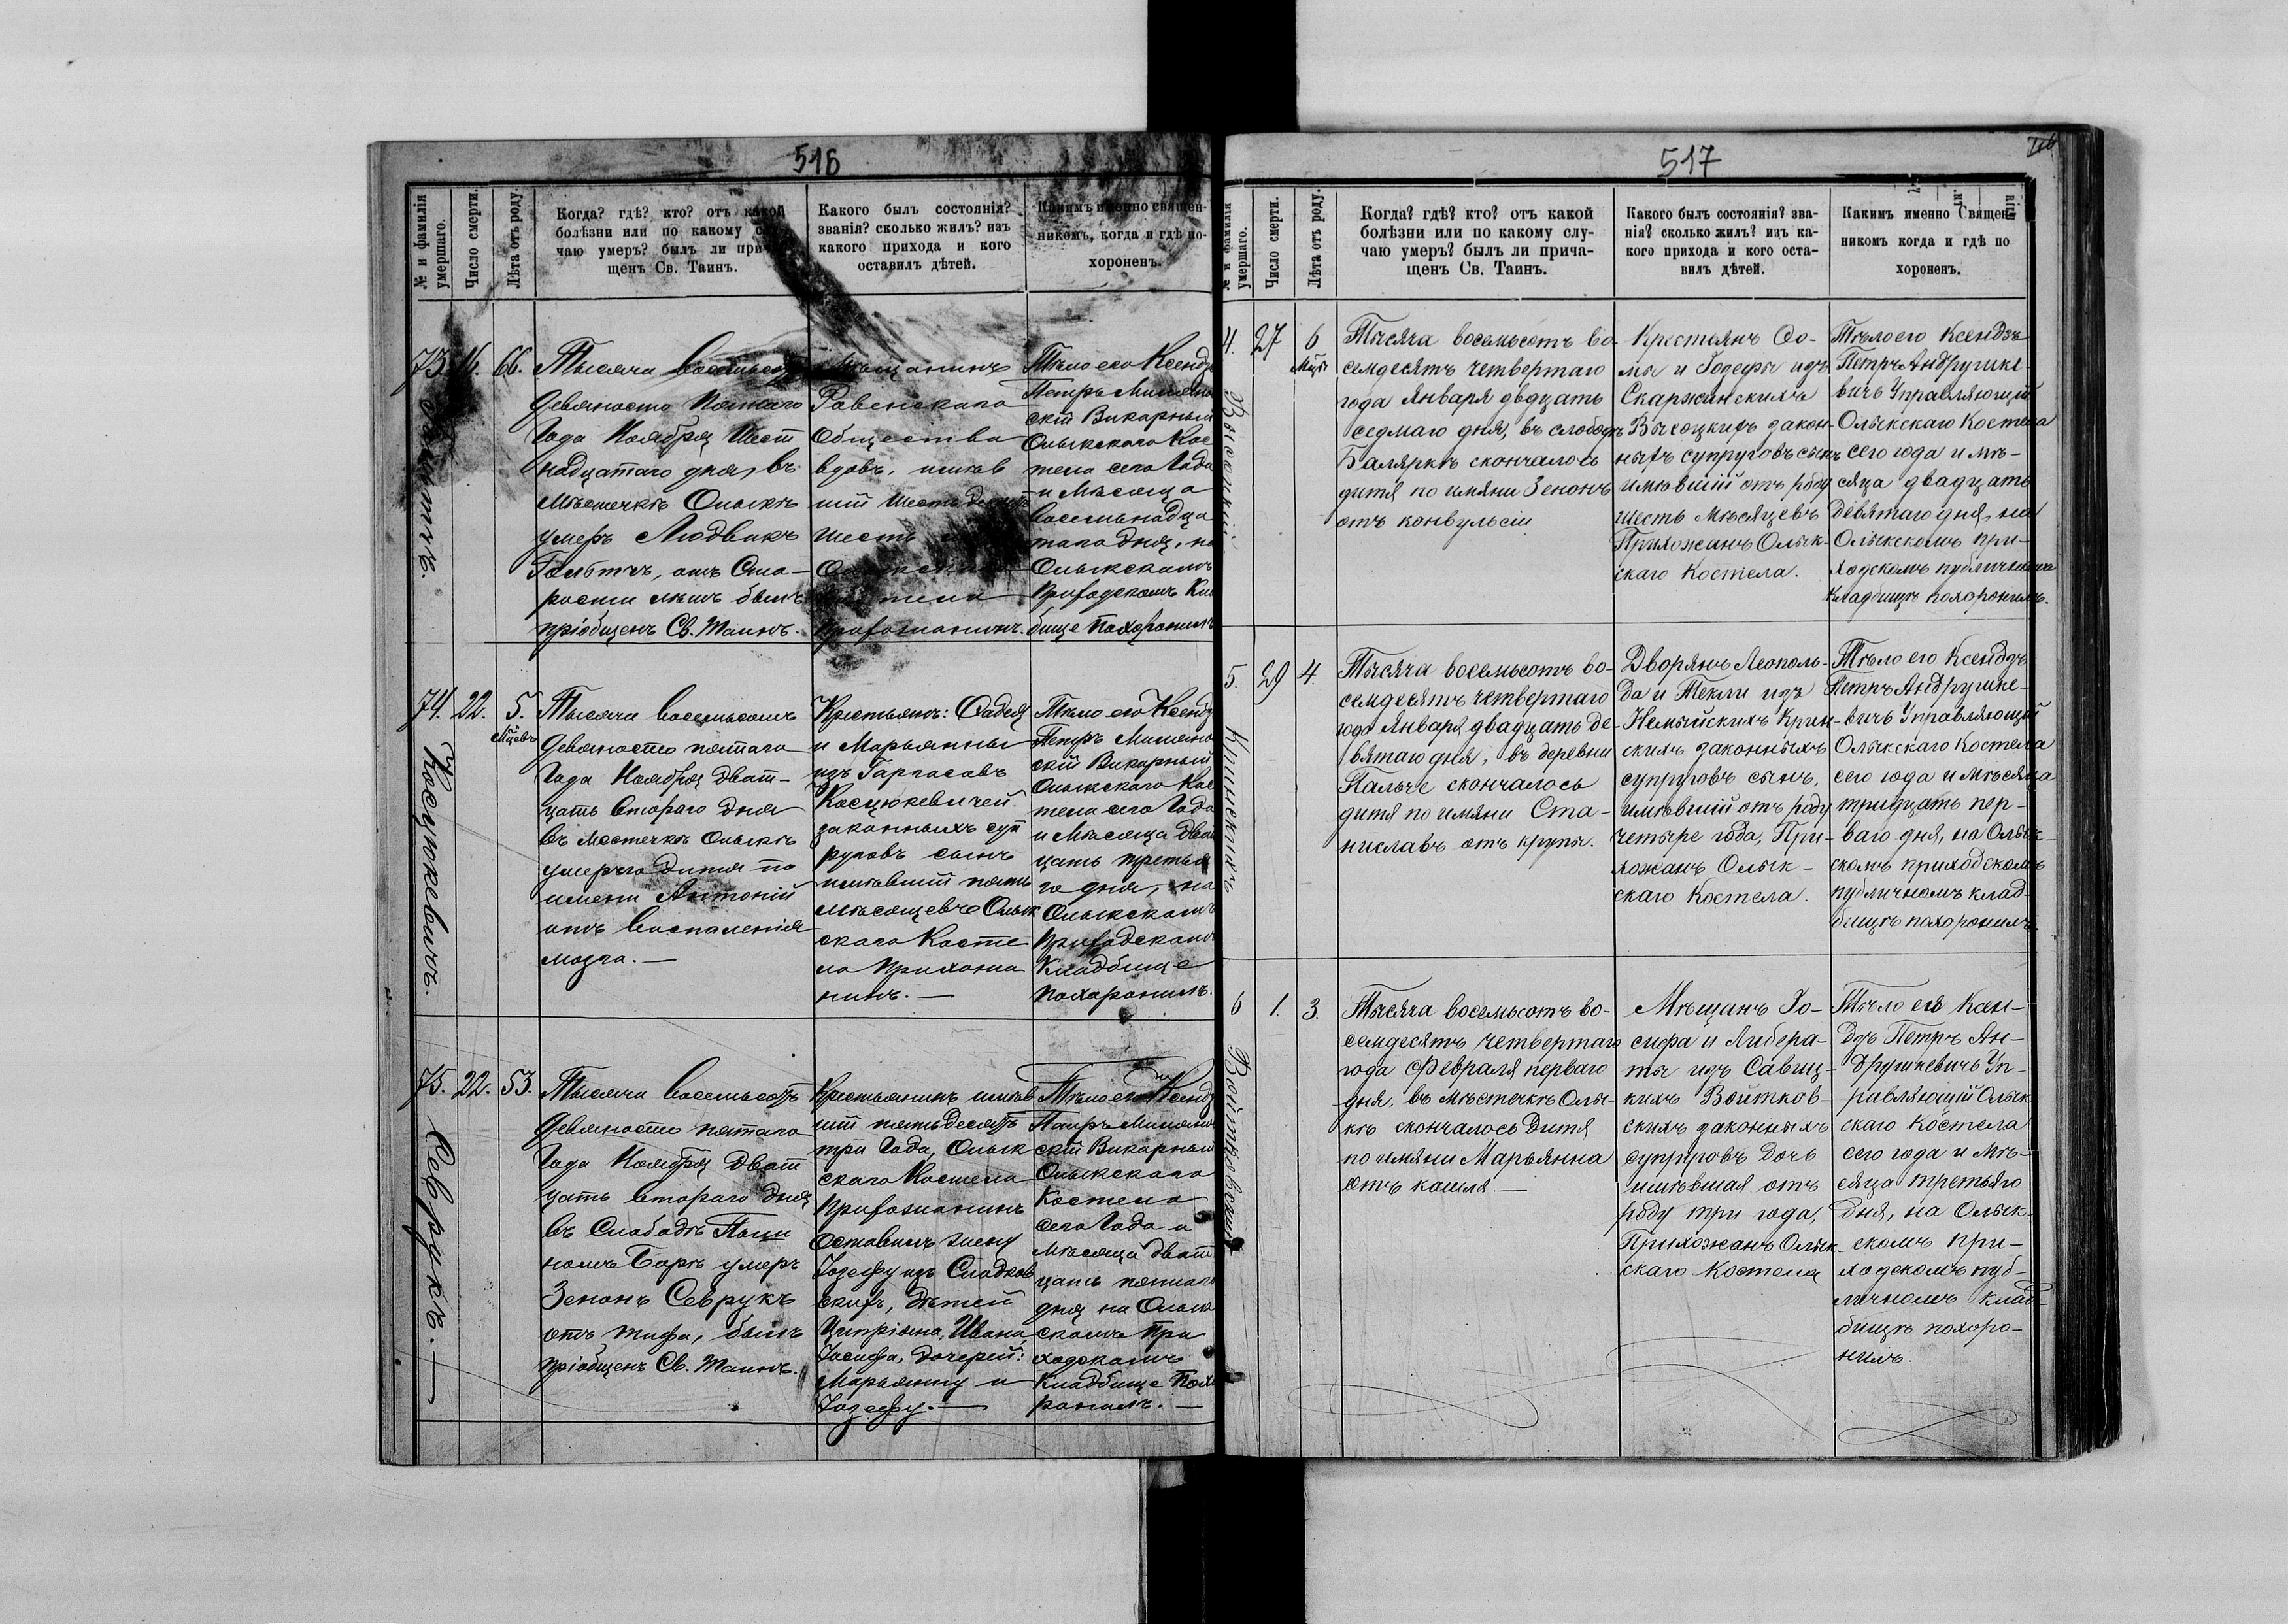 516
№ и фамилія умершаго.
Число смерти.
Лѣта отъ роду.
Когда? гдѣ? кто? отъ какой
болѣзни или по какому
чаю умеръ? былъ ли
щенъ Св. Таинъ.
Какого былъ состоянія?
званія? сколько жилъ? изъ
какого прихода и кого
оставилъ дѣтей.
Какимъ именно священ-
никомъ, когда и гдѣ по-
хороненъ.
73.
16.
66.
Тысяча восемьсотъ
девяносто пятаго
Года Ноября шест
надцатаго дня, въ
мѣстечкѣ Олыкѣ
умеръ Людвикъ
отъ Ста-
рости лѣтъ былъ
пріобщенъ Св. Таинъ.
Мѣщанинъ
Ровенскаго
Общества
вдовъ, имѣв
шій шестьдесятъ
шесть
прихожанинъ.
Тѣло его Ксендз
Петръ
скій Викарный
Олыкскаго Кос
тела сего Года
и Мѣсяца
восемьнадца
таго дня, на
Олыкскомъ
Приходскомъ Кла
бище похоронилъ
74.
22.
5.
Мѣцевъ
Косцюкевичъ.
Тысяча восемьсотъ
девяносто пятаго
Года Ноября двят-
цать втораго дня
въ Мѣстечкѣ Олыкѣ
умерло дитя по
имени Антоній
отъ воспаленія
мозга. —
Крестьянъ: Фадея
и Марьянны
изъ
Косцюкевичей
законныхъ суп
руговъ сынъ
имѣвшій пять
мѣсяцевъ Олык
скаго Косте
ла прихожа
нинъ. —
Тѣло его Ксендз
Петръ
скій Викарный
Олыкскаго Кос
тела сего Года
и Мѣсяца два
цать третья
го дня, на
Олыкскомъ
Приходскомъ
Кладбище
похоронилъ.
75.
22.
53.
Севрукъ. —
Тысяча восемьсотъ
девяносто пятаго
Года Ноября двят
цать втораго дня
въ Слободѣ
Борѣ умеръ
Зенонъ Севрукъ
отъ тифа, былъ
пріобщенъ Св. Таинъ.
Крестьянинъ имѣв
шій пятьдесятъ
три Года, Олык
скаго Костела
прихожанинъ
оставилъ жену
Іозефу изъ Сладков
скихъ, дѣтей
Ципріяна, Ивана,
Іосифа, дочерей:
Марьянну и
Іозефу. —
Тѣло его Ксендз
Петръ
скій Викарный
Олыкскаго
Костела
сего Года и
Мѣсяца двят
цать пятаго
дня на Олык
скомъ При
ходскомъ
Кладбище похо
ронилъ. —
517
№ и фамилія умершаго.
Число смерти.
Лѣта отъ роду.
Когда? гдѣ? кто? отъ какой
болѣзни или по какому слу-
чаю умеръ? былъ ли прича-
щенъ Св. Таинъ.
Какого былъ состоянія? зва-
нія? сколько жилъ? изъ ка-
кого прихода и кого оста-
вилъ дѣтей.
Какимъ именно Священ-
никомъ когда и гдѣ по
хороненъ.
4.
27
6
Мцы
Высоцкій
Тысяча восемьсотъ во-
семдесятъ четвертаго
года Января двдцать
седмаго дня, въ слободѣ
Баляркѣ скончалось
дитя по имяни Зенонъ
отъ конвульсіи
Крестьянъ Фо-
мы и Іозефы изъ
Скаржинскихъ
Высоцкихъ закон-
ныхъ супруговъ сынъ
имѣвшій отъ роду
шесть Мѣсяцевъ
Прихожанъ Олык-
скаго Костела.
Тѣло его Ксендзъ
Петръ Андрушке-
вичъ Управляющій
Олыкскаго Костела
сего года и мѣ-
сяца двадцать
девятаго дня, на
Олыкскомъ при-
ходскомъ публичномъ
кладбищѣ похоронилъ.
5.
29
4.
Крынскихъ
Тысяча восемьсотъ во-
семдесятъ четвертаго
года Января двадцать де-
вятаго дня, въ деревни
Пальче скончалось
дитя по имяни Ста-
ниславъ отъ крупы.
Дворянъ Леополь-
да и Текли изъ
Немыйскихъ Крын-
скихъ законныхъ
супруговъ сынъ,
имѣвшій отъ роду
четыре года, При-
хожанъ Олык-
скаго Костела.
Тѣло его Ксендзъ
Петръ Андрушке-
вичъ Управляющій
Олыкскаго Костела
сего года и Мѣсяца
тридцать пер-
ваго дня, на Олык-
скомъ приходскомъ
публичномъ клад-
бищѣ похоронилъ.
6
1.
3.
Войтковскихъ
Тысяча восемьсотъ во-
семдесятъ четвертаго
года Февраля перваго
дня, въ мѣстечкѣ Олы-
кѣ скончалось Дитя
по имяни Марьянна
отъ кашля. —
Мѣщанъ Іо-
сифа и Либера-
ты изъ Савиц-
кихъ Войтков-
скихъ законныхъ
супруговъ Дочь
имѣвшая отъ
роду три года,
Прихожанъ Олык-
скаго Костела
Тѣло ея Ксен-
дзъ Петръ Ан-
друшкевичъ Уп-
равляющій Олык
скаго Костела
сего года и мѣ-
сяца третьяго
дня, на Олык-
скомъ при-
ходскомъ пуб-
личномъ клад-
бищѣ похоро-
нилъ.